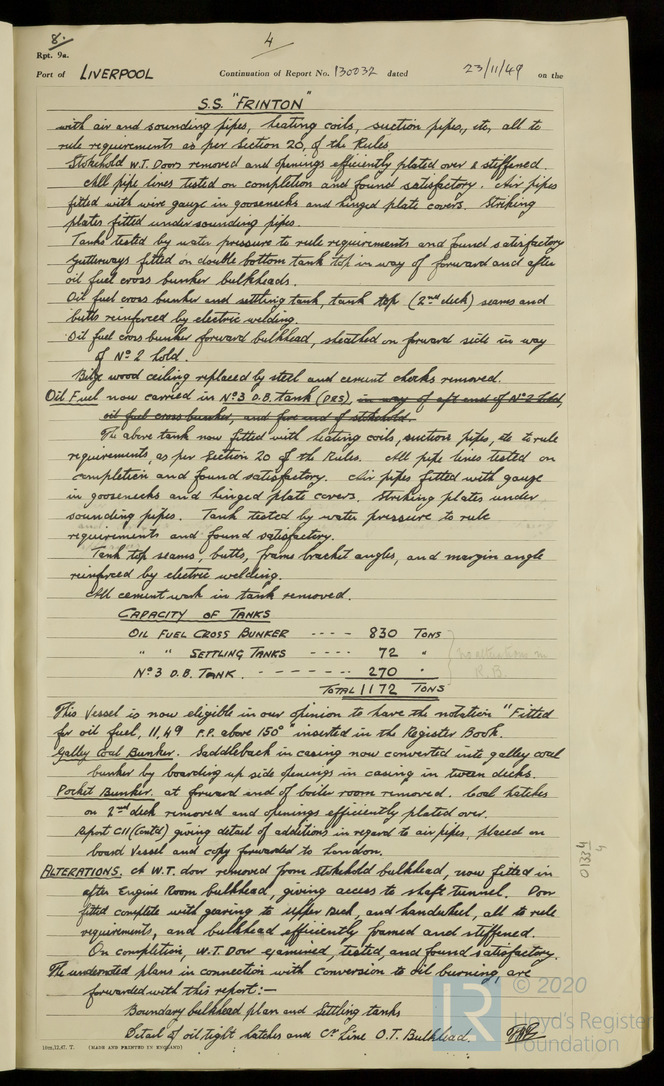 8.
4
Rpt. 9a.
Port of LIVERPOOL Continuation of Report No. 130032 dated 23/11/49 on the
S.S. "FRINTON"
with air and sounding pipes, heating coils, suction pipes, etc, all to
rule requirements as per Section 20, of the Rules
Stokehold W.T. Doors removed and openings efficiently plated over & stiffened.
All pipe lines tested on completion and found satisfactory. Air pipes
fitted with wire gauze in goosenecks and hinged plate covers. Striking
plates fitted under sounding pipes.
Tanks tested by water pressure to rule requirements and found satisfactory
Gutterways fitted on double bottom tank top in way of forward and after
oil fuel cross bunker bulkheads.
Oil fuel cross bunker and settling tank, tank top (2nd deck) seams and
butts reinforced by electric welding.
Oil fuel cross bunker forward bulkhead, sheathed on forward side in way
of No 2 hold.
Bilge wood ceiling replaced by steel and cement chocks removed.
Oil Fuel now carried in No 3 D.B. tank (P&S), in way of aft end of No 2 hold,
oil fuel cross bunker, and fore end of stokehold.
The above tank now fitted with heating coils, suction pipes, etc to rule
requirements, as per Section 20 of the Rules. All pipe lines tested on
completion and found satisfactory. Air pipes fitted with gauze
in goosenecks and hinged plate covers. Striking plates under
sounding pipes. Tank tested by water pressure to rule
requirements and found satisfactory.
Tank top seams, butts, frame bracket angles, and margin angle
reinforced by electric welding.
All cement work in tank removed.
CAPACITY OF TANKS
OIL FUEL CROSS BUNKER ---- 830 TONS
" " SETTLING TANKS ---- 72 "
No 3 D.B. TANK. ------- 270 "
TOTAL 1172 TONS
No alterations in
R.B.
This Vessel is now eligible in our opinion to have the notation "Fitted
for oil fuel, 11,49 F.P. above 150° inserted in the Register Book.
Galley Coal Bunker. Saddleback in casing now converted into galley coal
bunker by boarding up side openings in casing in tween decks.
Pocket Bunker. at forward end of boiler room removed. Coal hatches
on 2nd deck removed and openings efficiently plated over.
Report C11 (Contd) giving detail of additions in regard to air pipes, placed on
board Vessel and copy forwarded to London.
ALTERATIONS. A W.T. door removed from Stokehold bulkhead, now fitted in
after Engine Room bulkhead, giving access to shaft tunnel. Door
fitted complete with gearing to Upper Deck, and handwheel, all to rule
requirements, and bulkhead efficiently framed and stiffened.
On completion, W.T. Door examined, tested, and found satisfactory.
The undernoted plans in connection with conversion to oil burning, are
forwarded with this report:—
Boundary bulkhead plan and Settling tanks
Detail of oil tight hatches and Cr line O.T. Bulkhead.
(MADE AND PRINTED IN ENGLAND)
01334
LR © 2020
Lloyd's Register
Foundation